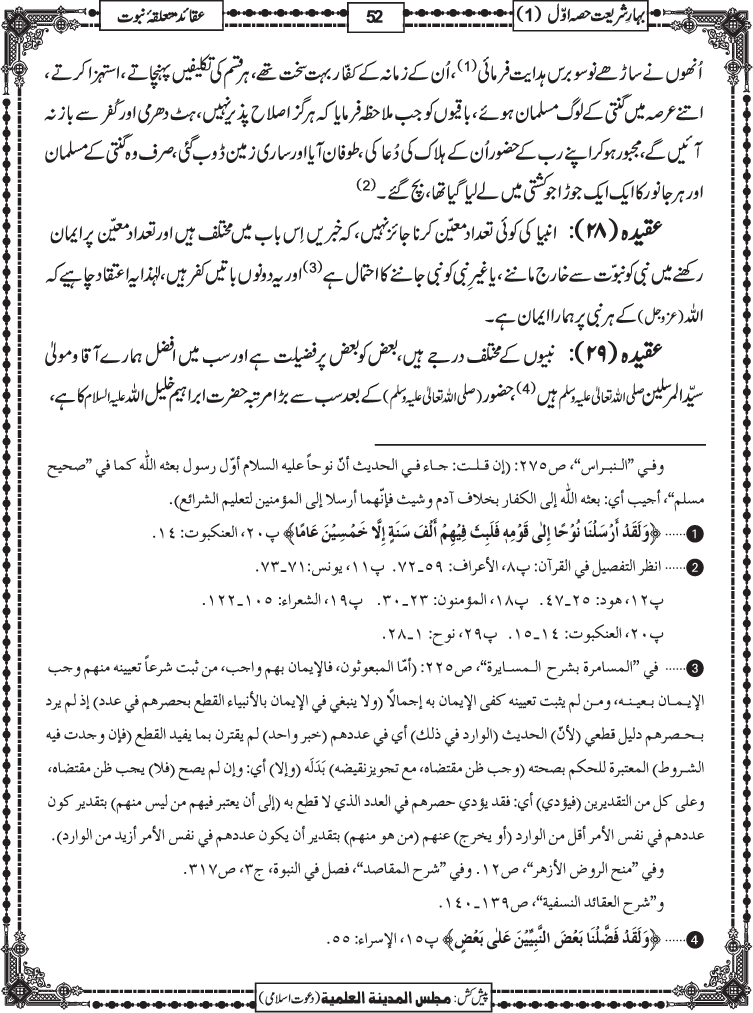 بہارِ شریعت حصہ اوّل (1)
52
عقائد متعلقۂ نبوت
اُنھوں نے ساڑھے نو سو برس ہدایت فرمائی (1)، اُن کے زمانہ کے کفار بہت سخت تھے، ہر قسم کی تکلیفیں پہنچاتے، استہزا کرتے،
اتنے عرصہ میں گنتی کے لوگ مسلمان ہوئے، باقیوں کو جب ملاحظہ فرمایا کہ ہرگز اصلاح پذیر نہیں، ہٹ دھرمی اور کُفر سے باز نہ
آئیں گے، مجبور ہو کر اپنے رب کے حضور اُن کے ہلاک کی دُعا کی، طوفان آیا اور ساری زمین ڈوب گئی، صرف وہ گنتی کے مسلمان
اور ہر جانور کا ایک ایک جوڑا جو کشتی میں لے لیا گیا تھا، بچ گئے۔ (2)
عقیدہ (۲۸): انبیا کی کوئی تعداد معیّن کرنا جائز نہیں، کہ خبریں اِس باب میں مختلف ہیں اور تعداد معیّن پر ایمان
رکھنے میں نبی کو نبوّت سے خارج ماننے، یا غیرِ نبی کو نبی جاننے کا احتمال ہے (3) اور یہ دونوں باتیں کفر ہیں، لہٰذا یہ اعتقاد چاہیے کہ
اللہ (عزوجل) کے ہر نبی پر ہمارا ایمان ہے۔
عقیدہ (۲۹): نبیوں کے مختلف درجے ہیں، بعض کو بعض پر فضیلت ہے اور سب میں افضل ہمارے آقا و مولیٰ
سیّد المرسلین صلی اللہ تعالیٰ علیہ وسلم ہیں (4)، حضور (صلی اللہ تعالیٰ علیہ وسلم) کے بعد سب سے بڑا مرتبہ حضرت ابراہیم خلیل اللہ علیہ السلام کا ہے،
وفي ”النبراس“، ص۲۷۵: (إن قلت: جاء في الحديث أنّ نوحاً عليه السلام أوّل رسول بعثه اللّه كما في ”صحيح
مسلم“، أجيب أي: بعثه اللّه إلى الكفار بخلاف آدم وشيث فإنّهما أرسلا إلى المؤمنين لتعليم الشرائع).
1 ...... ﴿وَلَقَدْ أَرْسَلْنَا نُوْحًا إِلٰى قَوْمِهٖ فَلَبِثَ فِيْهِمْ أَلْفَ سَنَةٍ إِلَّا خَمْسِيْنَ عَامًا﴾ پ۲۰، العنكبوت: ۱٤.
2 ...... انظر التفصيل في القرآن: پ۸، الأعراف: ۵۹ــ۷۲. پ۱۱، يونس:۷۱ــ۷۳.
پ۱۲، هود: ۲۵ــ٤۷. پ۱۸، المؤمنون: ۲۳ــ۳۰. پ۱۹، الشعراء: ۱۰۵ــ۱۲۲.
پ۲۰، العنكبوت: ۱٤ــ۱۵. پ۲۹، نوح: ۱ــ۲۸.
3 ...... في ”المسامرة بشرح المسايرة“، ص۲۲۵: (أمّا المبعوثون، فالإيمان بهم واجب، من ثبت شرعاً تعيينه منهم وجب
الإيمان بعينه، ومن لم يثبت تعيينه كفى الإيمان به إجمالًا (ولا ينبغي في الإيمان بالأنبياء القطع بحصرهم في عدد) إذ لم يرد
بحصرهم دليل قطعي (لأنّ) الحديث (الوارد في ذلك) أي في عددهم (خبر واحد) لم يقترن بما يفيد القطع (فإن وجدت فيه
الشروط) المعتبرة للحكم بصحته (وجب ظن مقتضاه، مع تجويز نقيضه) بَدَلَه (وإلا) أي: وإن لم يصح (فلا) يجب ظن مقتضاه،
وعلى كل من التقديرين (فيؤدي) أي: فقد يؤدي حصرهم في العدد الذي لا قطع به (إلى أن يعتبر فيهم من ليس منهم) بتقدير كون
عددهم في نفس الأمر أقل من الوارد (أو يخرج) عنهم (من هو منهم) بتقدير أن يكون عددهم في نفس الأمر أزيد من الوارد).
وفي ”منح الروض الأزهر“، ص۱۲. وفي ”شرح المقاصد“، فصل في النبوة، ج۳، ص۳۱۷.
و”شرح العقائد النسفية“، ص۱۳۹ــ۱٤۰.
4 ...... ﴿وَلَقَدْ فَضَّلْنَا بَعْضَ النَّبِيّٖنَ عَلٰى بَعْضٍ﴾ پ۱۵، الإسراء: ۵۵.
پیش کش: مجلس المدينة العلمية (دعوت اسلامی)